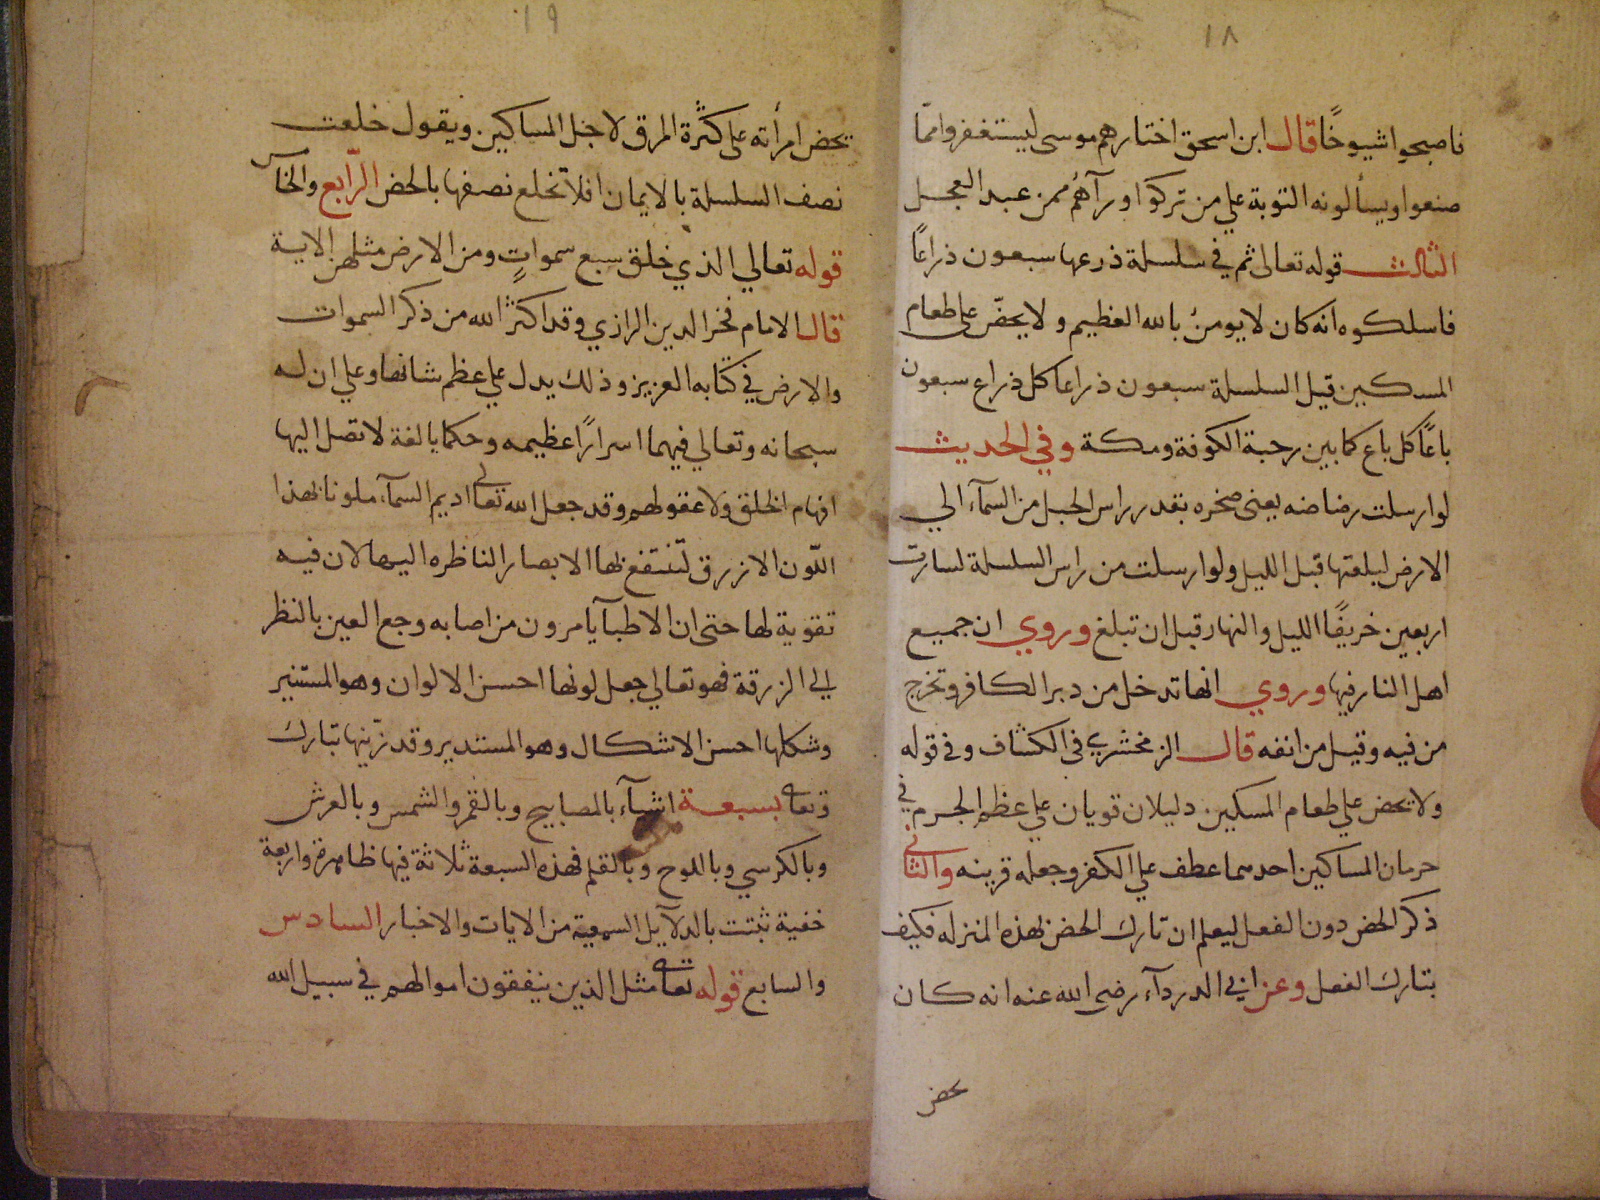 ١٨
فاصبحوا شيوخًا قال ابن اسحق اختارهم موسى ليستغفروا ممّا
صنعوا ويسألونه التوبة علي من تركوا ورآهم ممن عبد العجل
الثالث قوله تعالى ثم في سلسلة ذرعها سبعون ذراعًا
فاسلكوه انه كان لا يومنُ بالله العظيم ولا يحضّ على طعام
المسكين قيل السلسلة سبعون ذراعا كل ذراع سبعون
باعًا كل باع كما بين رحبة الكوفة ومكة وفي الحديث
لو ارسلت رضاضه يعنى صخره بقدر راس الجبل من السمآء الي
الارض لبلغتها قبل الليل ولو ارسلت من راس السلسلة لسارت
اربعين خريفًا الليل والنهار قبل ان تبلغ وروي ان جميع
اهل النار فيها وروي انها تدخل من دبر الكافر وتخرج
من فيه وقيل من انفه قال الزمخشري في الكشاف وفى قوله
ولا يحض علي طعام المسكين دليلان قويان علي عظم الجرم في
حرمان المساكين احدهما عطف علي الكفر وجعله قرينه والثانى
ذكر الحض دون الفعل ليعلم ان تارك الحض بهذه المنزله فكيف
بتارك الفعل وعن ابي الدردآء رضى الله عنه انه كان
يحض
١٩
يحض امرأته على كثرة المرق لاجل المساكين ويقول خلعت
نصف السلسلة بالايمان افلا نخلع نصفها بالحض الرّابع والخامس
قوله تعالي الذي خلق سبع سمواتٍ ومن الارض مثلهن الاية
قال الامام فخر الدين الرازي وقد اكثر الله من ذكر السموات
والارض في كتابه العزيز وذلك يدل علي عظم شانها وعلي ان له
سبحانه وتعالي فيهما اسرارًا عظيمه وحكما بالغة لا تصل اليها
افهام الخلق ولا عقولهم وقد جعل الله تعالى اديم السمآء ملونا بهذا
اللّون الازرق لتنتفع بها الابصار الناظره اليها لان فيه
تقوية لها حتى ان الاطبآ يامرون من اصابه وجع العين بالنظر
الي الزرقة فهو تعالي جعل لونها احسن الالوان وهو المستنير
وشكلها احسن الاشكال وهو المستدير وقد زيّنها تبارك
وتعا بسبعة اشيآء بالمصابيح وبالقمر والشمس وبالعرش
وبالكرسي وباللوح وبالقلم فهذه السبعة ثلاثة فيها ظاهرة واربعة
خفية ثبتت بالدلآيل السمعية من الايات والاخبار السادس
والسابع قوله تعا مثل الذين ينفقون اموالهم في سبيل الله